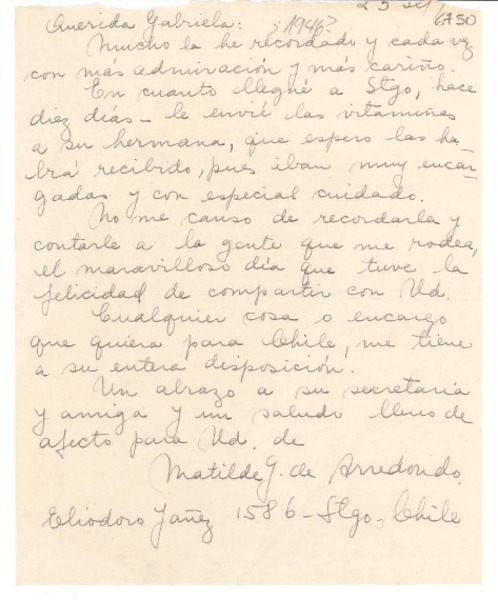 25 set/
6750
Querida Gabriela: ¿1946?
Mucho la he recordado y cada vez
con más admiración y más cariño.
En cuanto llegué a Stgo, hace
diez días - le envié las vitaminas
a su hermana, que espero las ha-
brá recibido, pues iban muy encar-
gadas y con especial cuidado.
No me canso de recordarla y
contarle a la gente que me rodea,
el maravilloso día que tuve la
felicidad de compartir con Ud.
Cualquier cosa o encargo
que quiera para Chile, me tiene
a su entera disposición.
Un abrazo a su secretaria
y amiga y un saludo lleno de
afecto para Ud. de
Matilde G. de Arredondo.
Eliodoro Yañez 1586 - Stgo, Chile